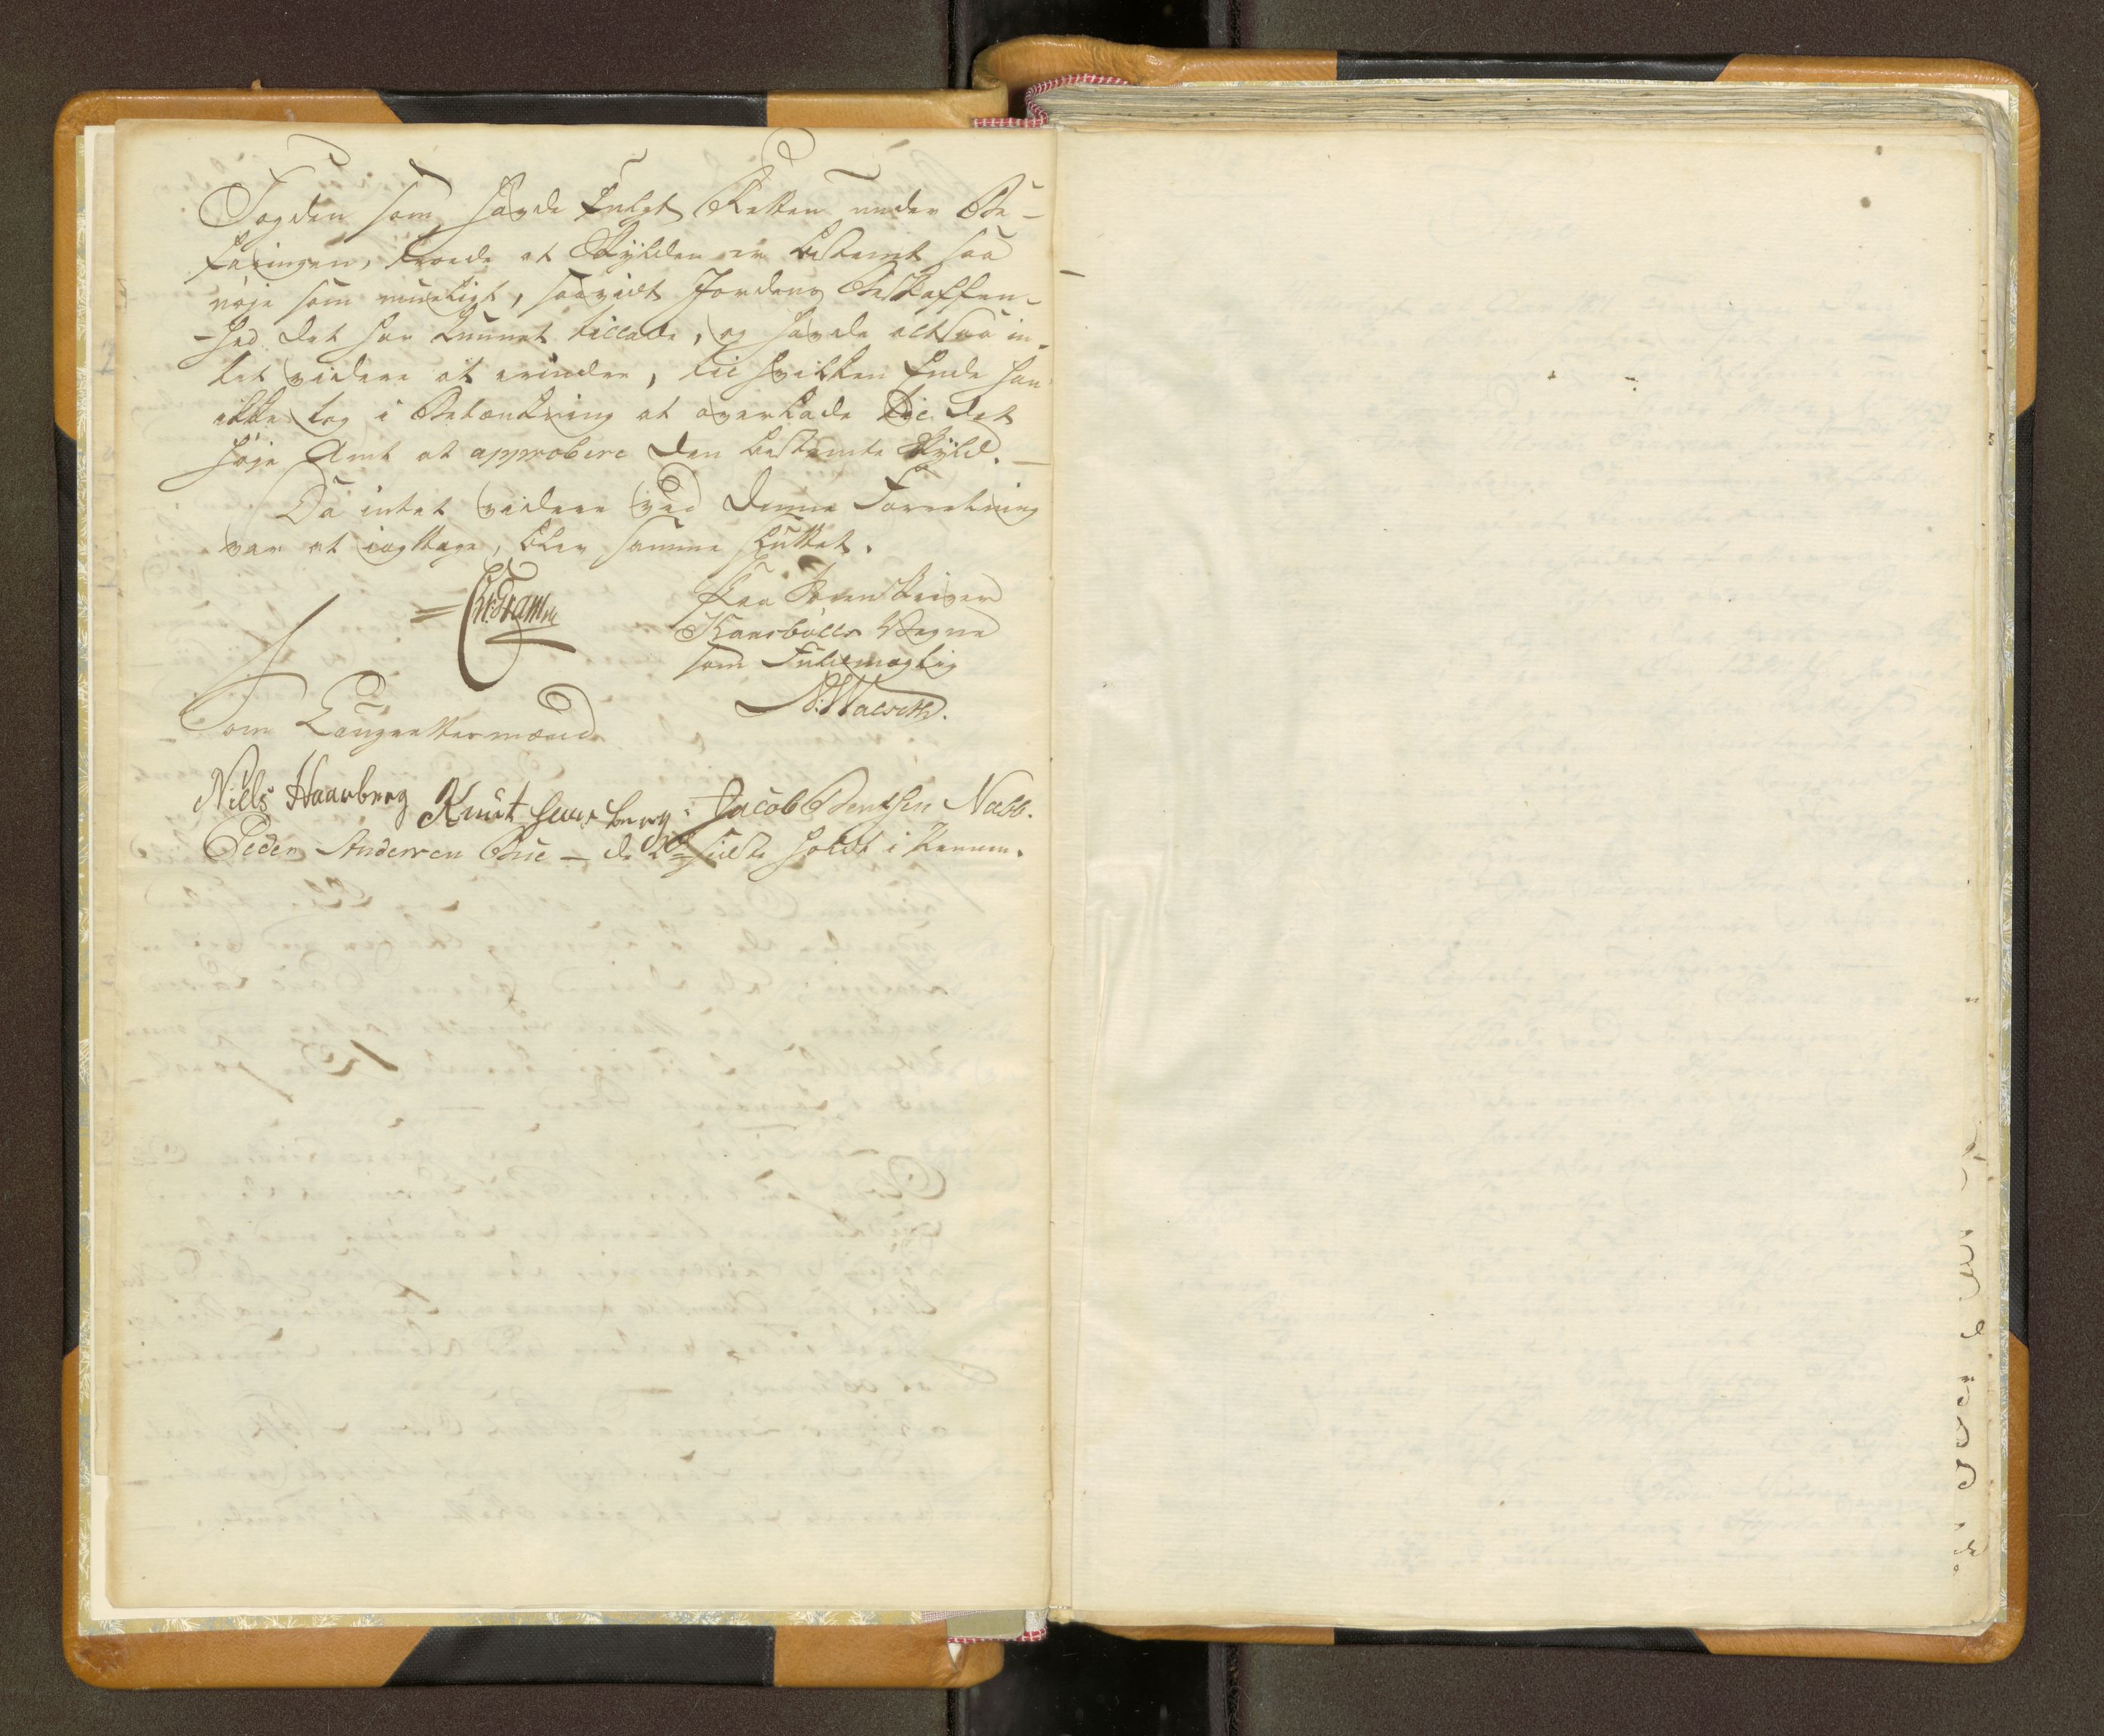 Fogden som havde fulgt Retten under Be-
faringen, troede at Skylden er bestemt saa
nøje som mueligt, saavidt Jordens Beskaffen-
-hed det har kunnet tillade, og havde altsaa in-
tet videre at erindre, til hvilken Ende han
ikke tog i Betænkning at overlade til det
høje Amt at approbere den bestemte Skyld. —
Da intet videre ved denne Forretning
var at iagttage, blev samme sluttet.
Paa Sorenskriver
Kaasbølls Vegne
som Fuldmægtig
Som Laugrettesmænd
Niels Haarberg Knut Haarberg. Jacob Bentsen Nabb.
Peder Andersen Bue — de 2de sidste holdt i Pennen.